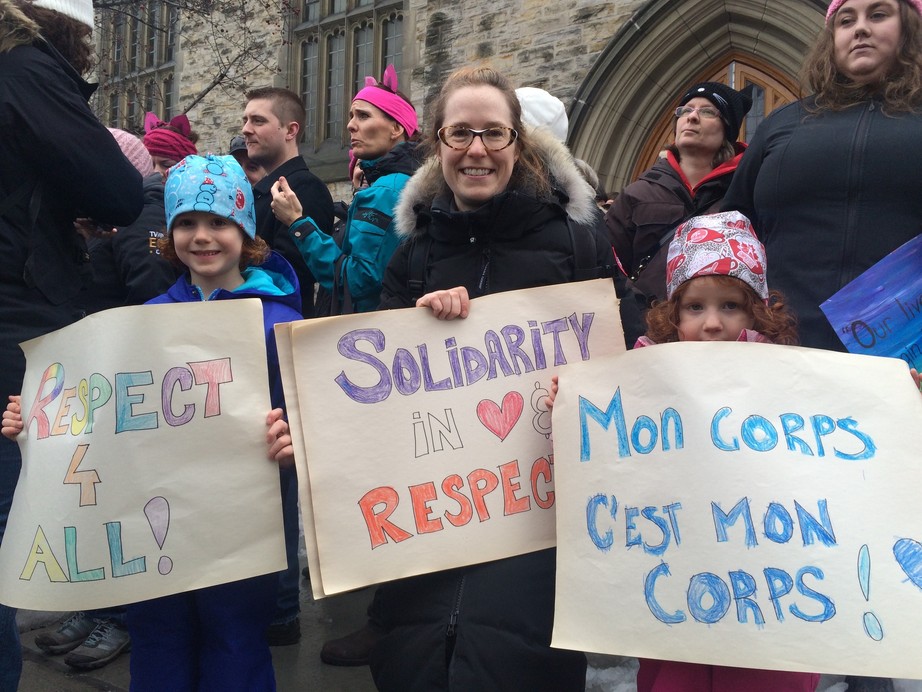 RESPECT
4
ALL!
SOLIDARITY
IN ♥ &
RESPECT
MON CORPS
C'EST MON
CORPS!
"Our li